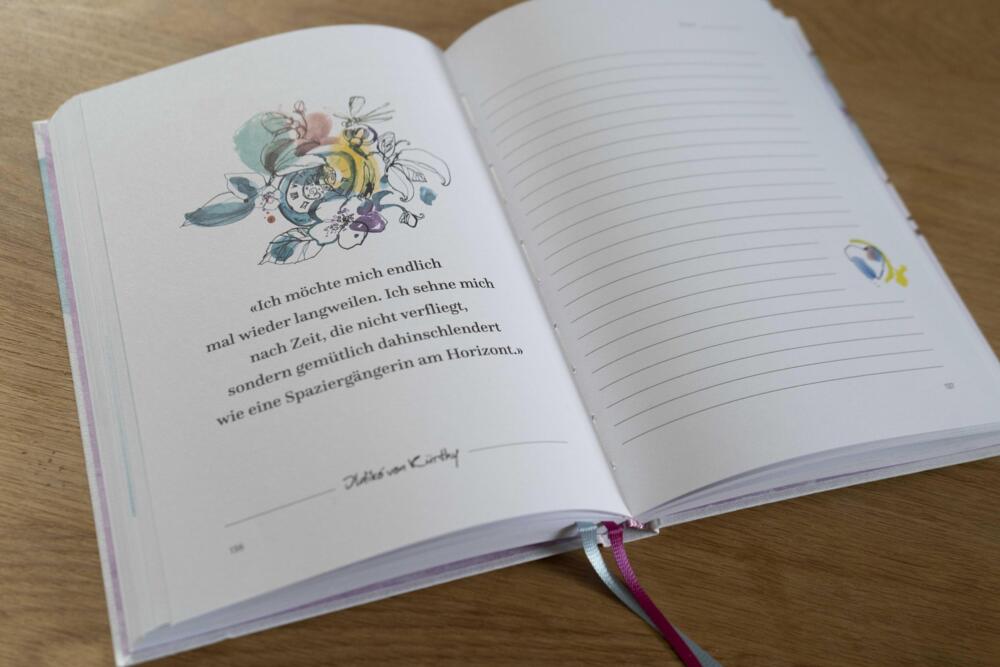 «Ich möchte mich endlich
mal wieder langweilen. Ich sehne mich
nach Zeit, die nicht verfliegt,
sondern gemütlich dahinschlendert
wie eine Spaziergängerin am Horizont.»
Ildikó von Kürthy